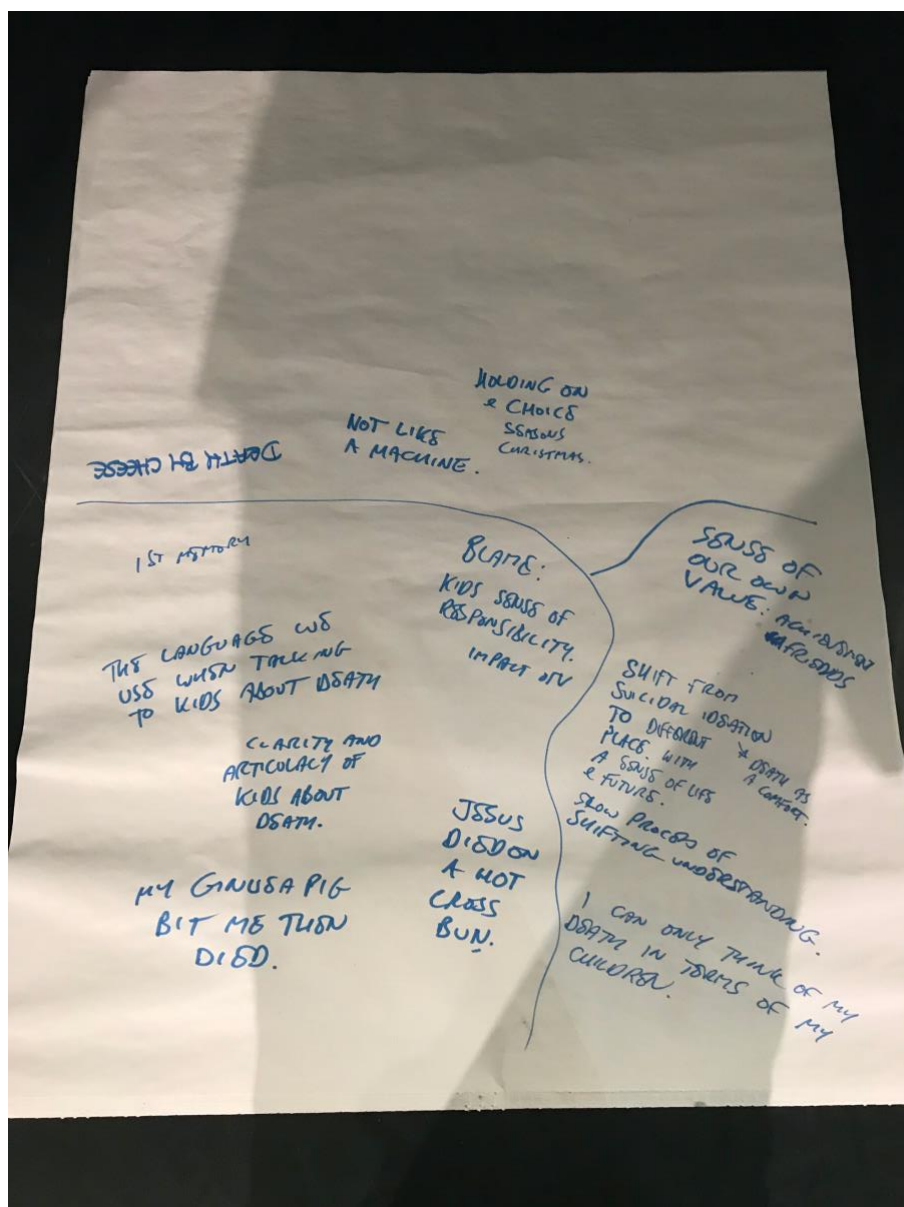 HOLDING ON
& CHOICE
SEASONS
CHRISTMAS.
NOT LIKE
A MACHINE.
DEATH BY CHEESE
1ST MEMORY
THE LANGUAGE WE
USE WHEN TALKING
TO KIDS ABOUT DEATH
CLARITY AND
ARTICULACY OF
KIDS ABOUT
DEATH.
MY GINUEA PIG
BIT ME THEN
DIED.
BLAME:
KIDS SENSE OF
RESPONSIBILITY.
IMPACT ON
JESUS
DIED ON
A HOT
CROSS
BUN.
SENSE OF
OUR OWN
VALUE: ACHIEVEMENT
FRIENDS
SHIFT FROM
SUICIDAL IDEATION
TO DIFFERENT
PLACE WITH
A SENSE OF LIFE
& FUTURE.
* DEATH AS
A COMFORT.
SHOW PROCESS OF
SHIFTING UNDERSTANDING.
I CAN ONLY THINK OF MY
DEATH IN TERMS OF MY
CHILDREN.